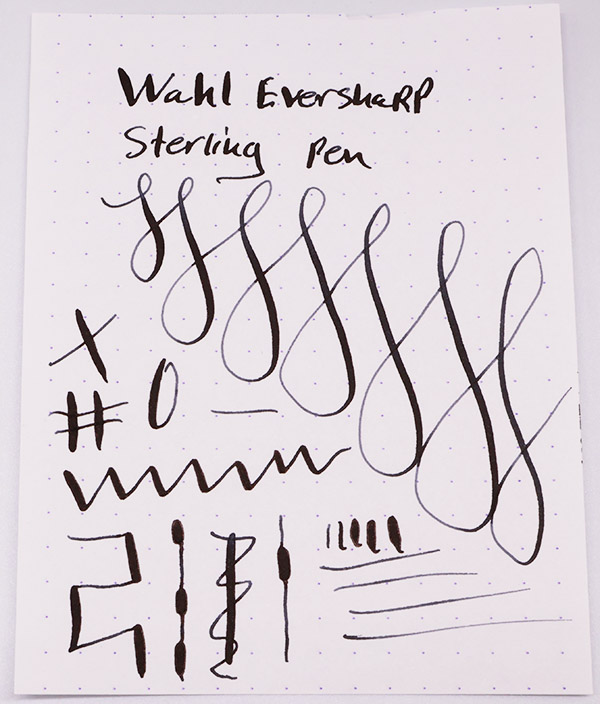 Wahl Eversharp
Sterling Pen
X
# 0 —